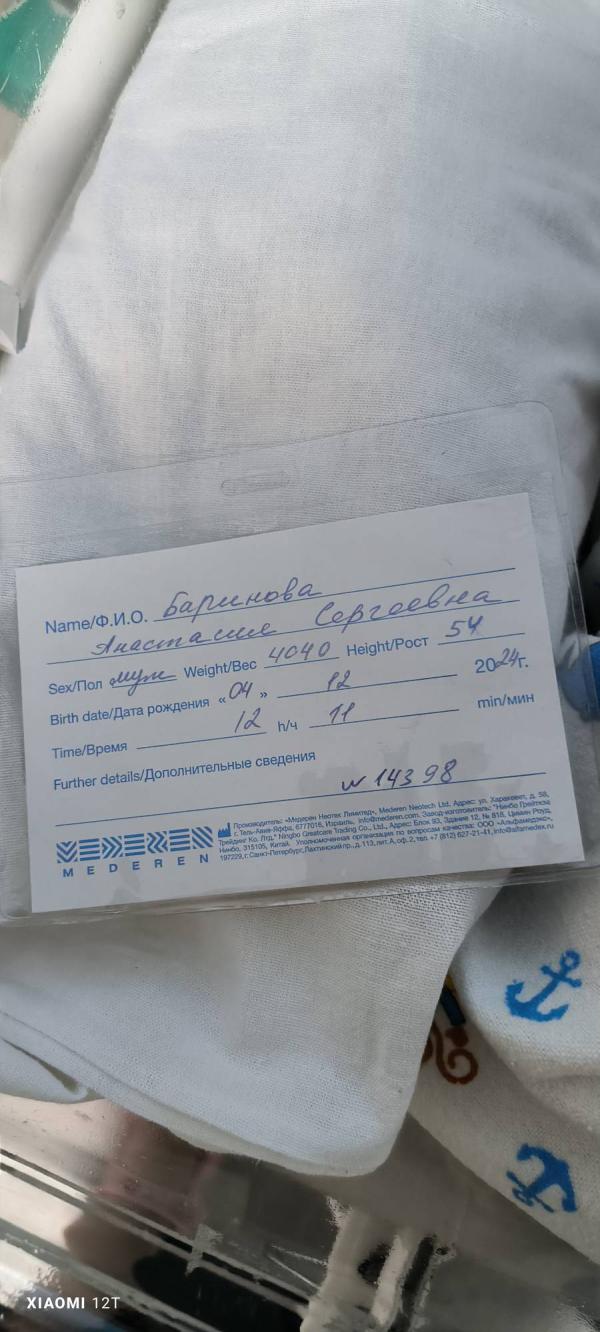 Name/Ф.И.О. Баринова
Анастасия Сергеевна
Sex/Пол муж Weight/Вес 4040 Height/Рост 54
Birth date/Дата рождения «04» 12 2024г.
Time/Время 12 h/ч 11 min/мин
Further details/Дополнительные сведения
N 14398
MEDEREN
Производитель: «Медерен Неотех Лимитед», Mederen Neotech Ltd. Адрес: ул. Харакевет, д. 58,
г. Тель-Авив-Яффа, 6777016, Израиль, info@mederen.com. Завод-изготовитель: "Нинбо Грейткэа
Трейдинг Ко. Лтд," Ningbo Greatcare Trading Co., Ltd., Адрес: Блок 93, Здание 12, № 818, Цимин Роуд,
Нинбо, 315105, Китай. Уполномоченная организация по вопросам качества: ООО «Альфамедэкс»,
197229, г. Санкт-Петербург, Лахтинский пр., д. 113, лит. А, оф. 2, тел. +7 (812) 627-21-41, info@alfamedex.ru
XIAOMI 12T